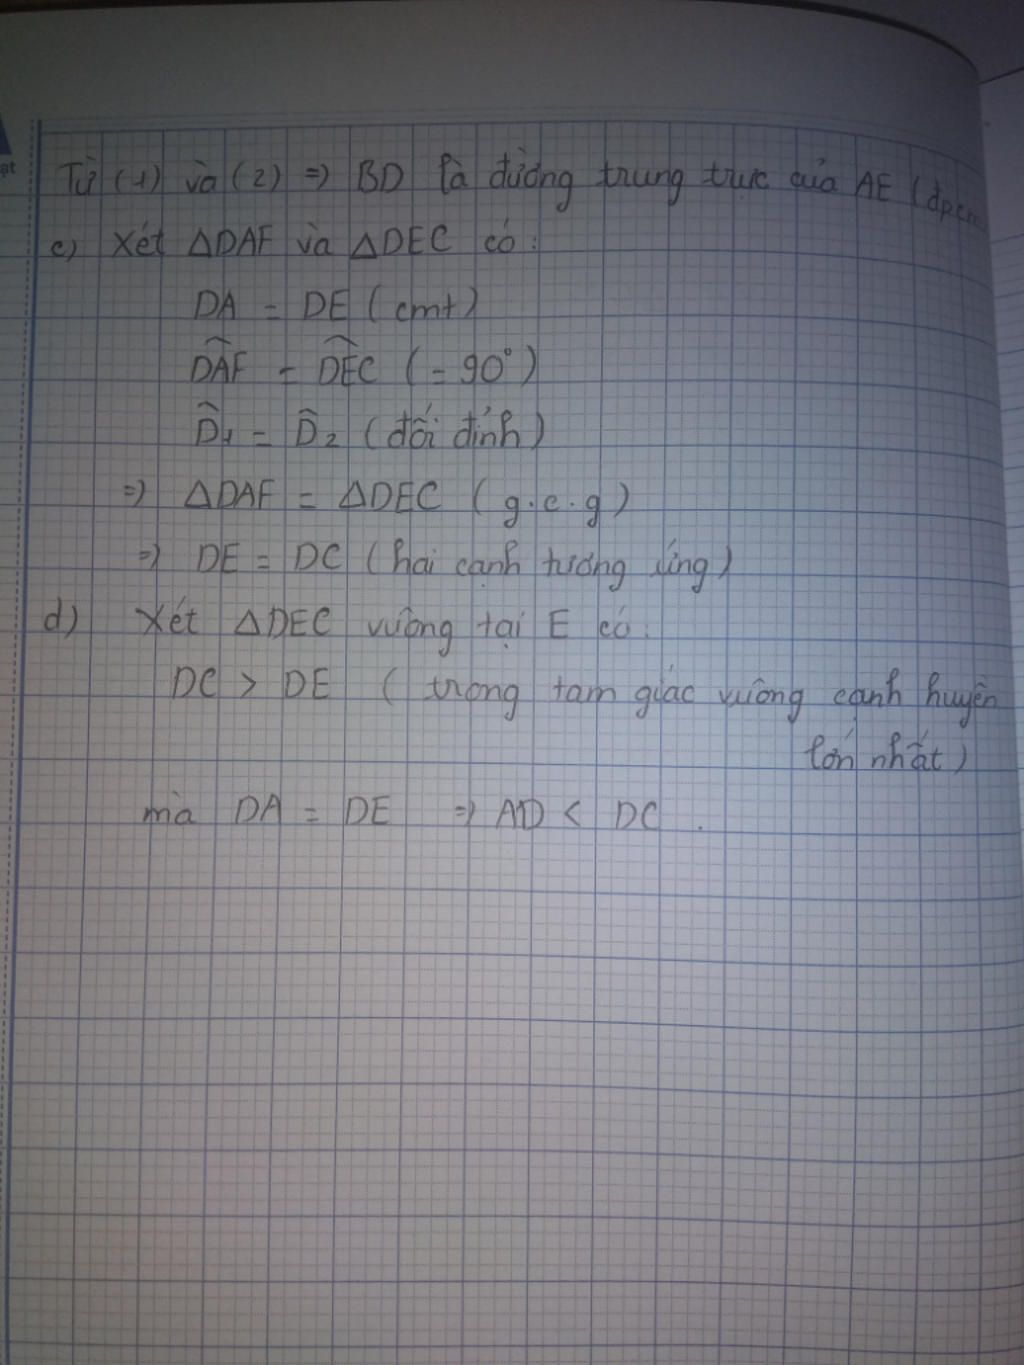 Từ (1) và (2) => BD là đường trung trực của AE (đpcm
c) Xét ΔDAF và ΔDEC có:
DA = DE (cmt)
\widehat{DAF} = \widehat{DEC} (= 90°)
\widehat{D}₁ = \widehat{D}₂ (đối đỉnh)
=> ΔDAF = ΔDEC (g.c.g)
=> DE = DC (hai cạnh tương ứng)
d) Xét ΔDEC vuông tại E có:
DC > DE (trong tam giác vuông cạnh huyền
lớn nhất)
mà DA = DE => AD < DC.